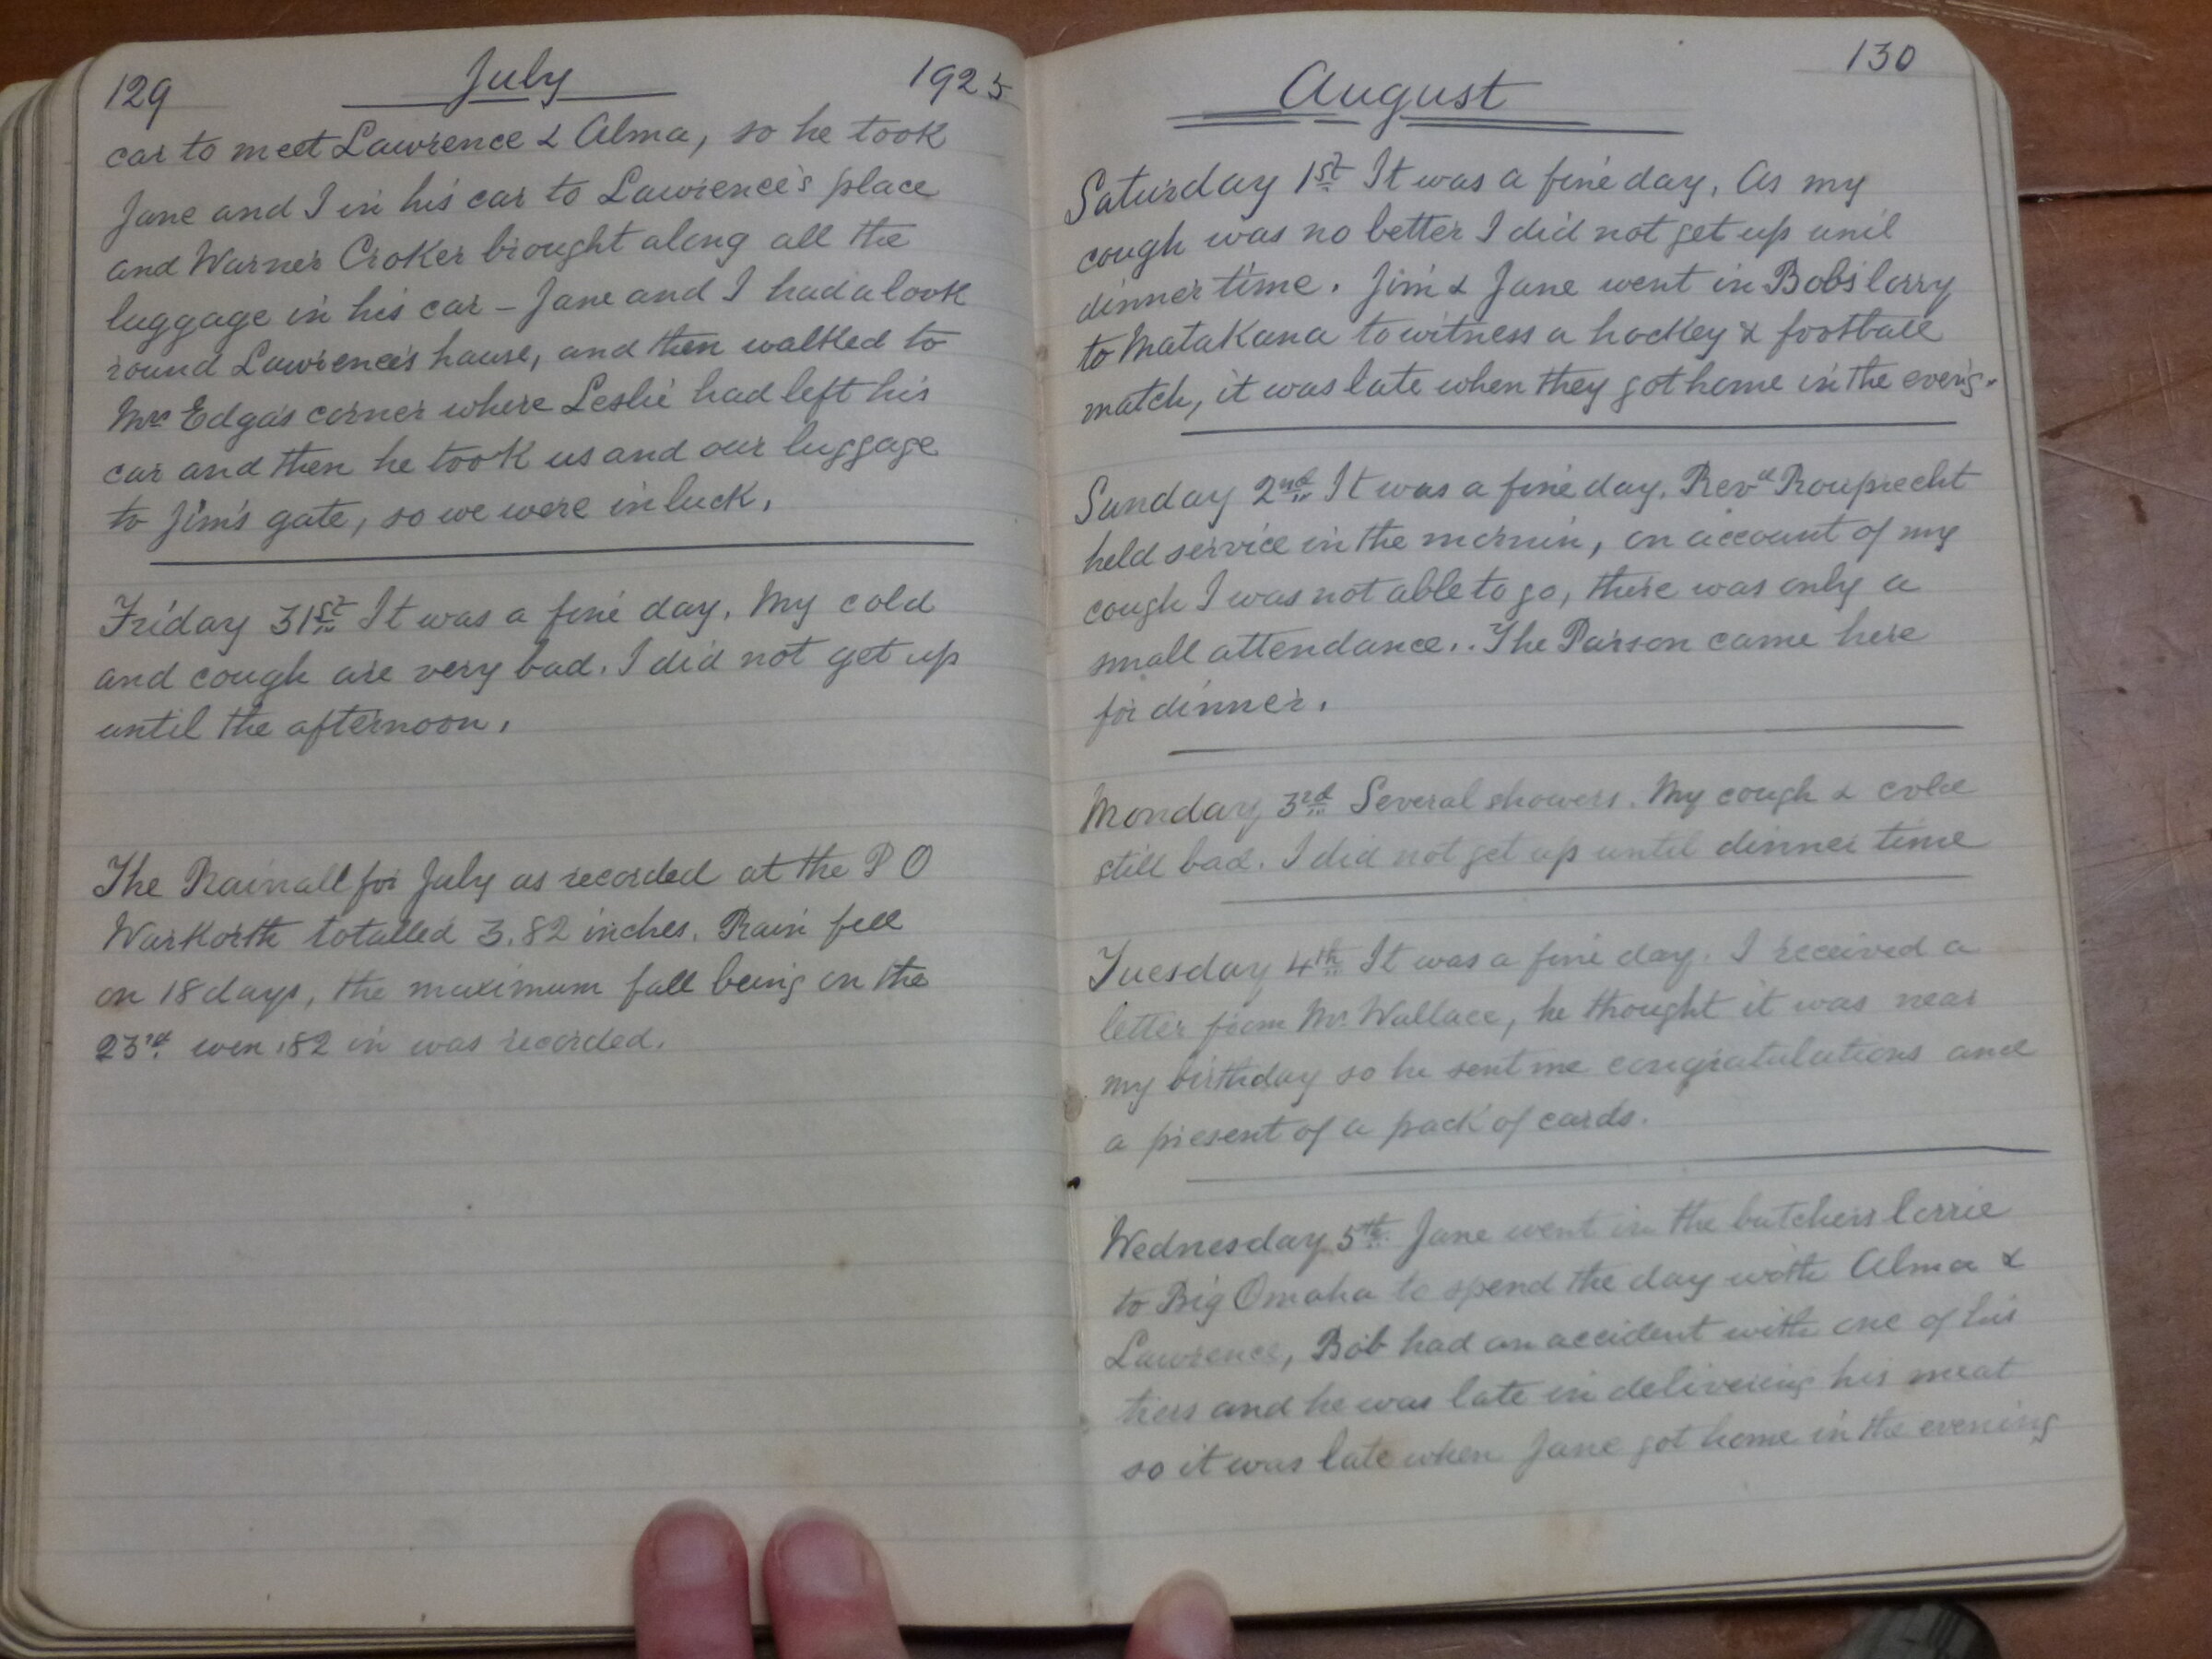 129 July 1925
car to meet Lawrence & Alma, so he took
Jane and I in his car to Lawrence's place
and Warner Croker brought along all the
luggage in his car – Jane and I had a look
round Lawrence's house, and then walked to
Mrs Edgas corner where Leslie had left his
car and then he took us and our luggage
to Jim's gate, so we were in luck.
Friday 31st It was a fine day. My cold
and cough are very bad. I did not get up
until the afternoon.
The Rainall for July as recorded at the P O
Warkorth totalled 3.82 inches. Rain fell
on 18 days, the maximum fall being on the
23rd wen .82 in was recorded.
August 130
Saturday 1st It was a fine day. As my
cough was no better I did not get up unil
dinner time. Jim & Jane went in Bob's lorry
to Matakana to witness a hockey & football
match, it was late when they got home in the evenig.
Sunday 2nd It was a fine day. Revd Rouprecht
held service in the mornin, on account of my
cough I was not able to go, there was only a
small attendance.. The Parson came here
for dinner.
Monday 3rd Several showers. My cough & cold
still bad. I did not get up until dinner time
Tuesday 4th It was a fine day. I received a
letter from Mr. Wallace, he thought it was near
my birthday so he sent me congratulations and
a present of a pack of cards.
Wednesday 5th Jane went in the butchers lorrie
to Big Omaha to spend the day with Alma &
Lawrence, Bob had an accident with one of his
tiers and he was late in delivering his meat
so it was late when Jane got home in the evening